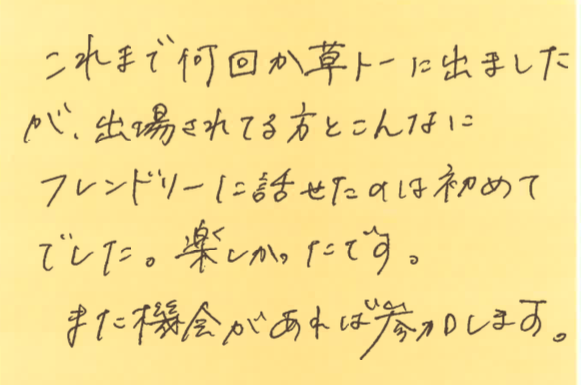 これまで何回か草トーに出ました
が、出場されてる方とこんなに
フレンドリーに話せたのは初めて
でした。楽しかったです。
また機会があれば参加します。